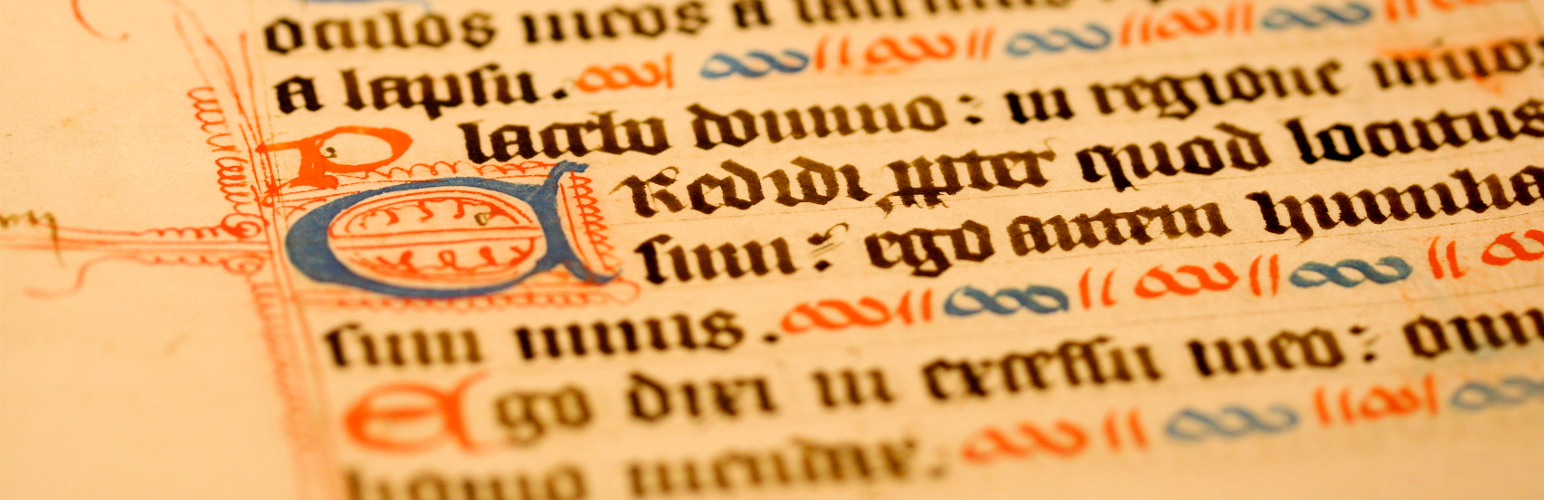 oculos meos a lacrimis
a lapſu.
Placebo domino: in regione vivo
Credidi ꝓpter quod locutus
ſum: ego autem humilia
ſum nimis.
Ego dixi in exceſſu meo: omni
homo mendax.